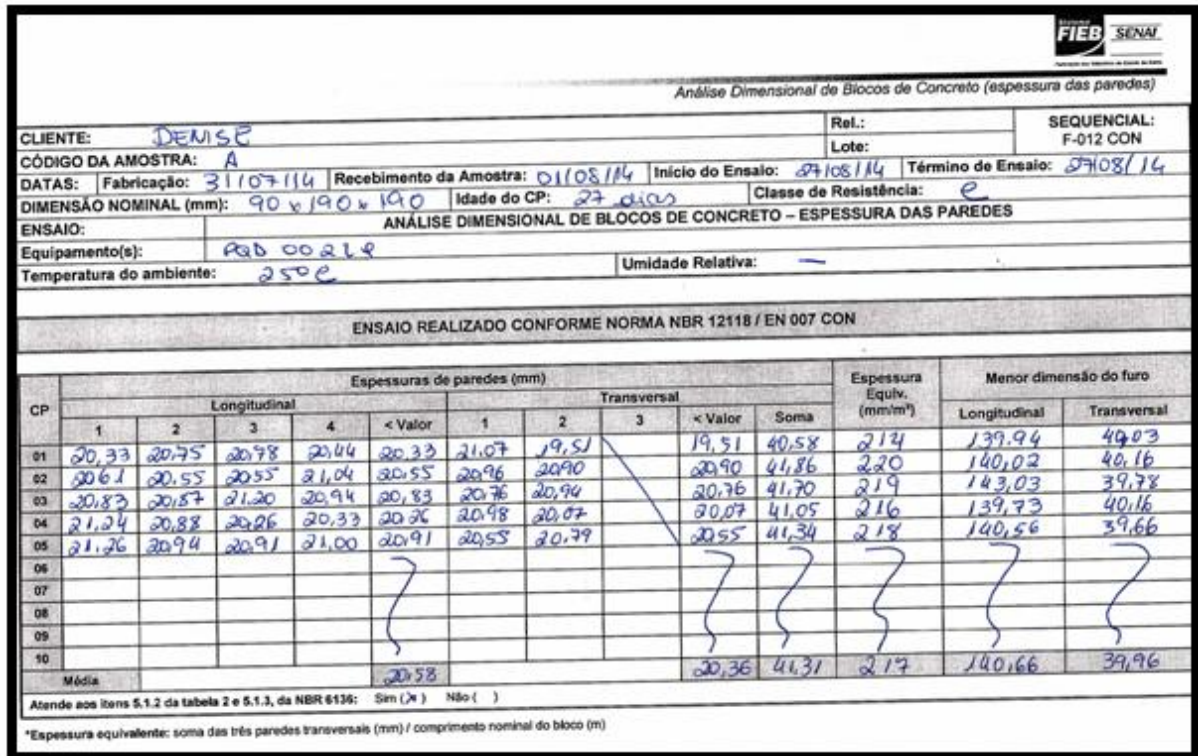 FIEB SENAI
Análise Dimensional de Blocos de Concreto (espessura das paredes)
CLIENTE: DENISE Rel.: SEQUENCIAL:
Lote: F-012 CON
CÓDIGO DA AMOSTRA: A
DATAS: Fabricação: 31/07/14 Recebimento da Amostra: 01/08/14 Início do Ensaio: 27/08/14 Término de Ensaio: 27/08/14
DIMENSÃO NOMINAL (mm): 90 x 190 x 190 Idade do CP: 27 dias Classe de Resistência: C
ENSAIO: ANÁLISE DIMENSIONAL DE BLOCOS DE CONCRETO – ESPESSURA DAS PAREDES
Equipamento(s):
Temperatura do ambiente: 25°C Umidade Relativa: —
ENSAIO REALIZADO CONFORME NORMA NBR 12118 / EN 007 CON
CP Espessuras de paredes (mm) Espessura Equiv. (mm/m*) Menor dimensão do furo
Longitudinal Transversal Longitudinal Transversal
1 2 3 4 < Valor 1 2 3 < Valor Soma
01 20,33 20,75 20,78 20,44 20,33 21,07 19,51 19,51 40,58 214 139,94 40,03
02 20,61 20,55 20,55 21,04 20,55 20,96 20,90 20,90 41,86 220 140,02 40,16
03 20,83 20,87 21,20 20,94 20,83 20,76 20,94 20,76 41,70 219 143,03 39,78
04 21,24 20,88 20,26 20,33 20,26 20,98 20,07 20,07 41,05 216 139,73 40,16
05 21,26 20,94 20,91 21,00 20,91 20,55 20,79 20,55 41,34 218 140,56 39,66
06
07
08
09
10
Média 20,58 20,36 41,31 217 140,66 39,96
Atende aos itens 5.1.2 da tabela 2 e 5.1.3, da NBR 6136: Sim (x) Não ( )
*Espessura equivalente: soma das três paredes transversais (mm) / comprimento nominal do bloco (m)